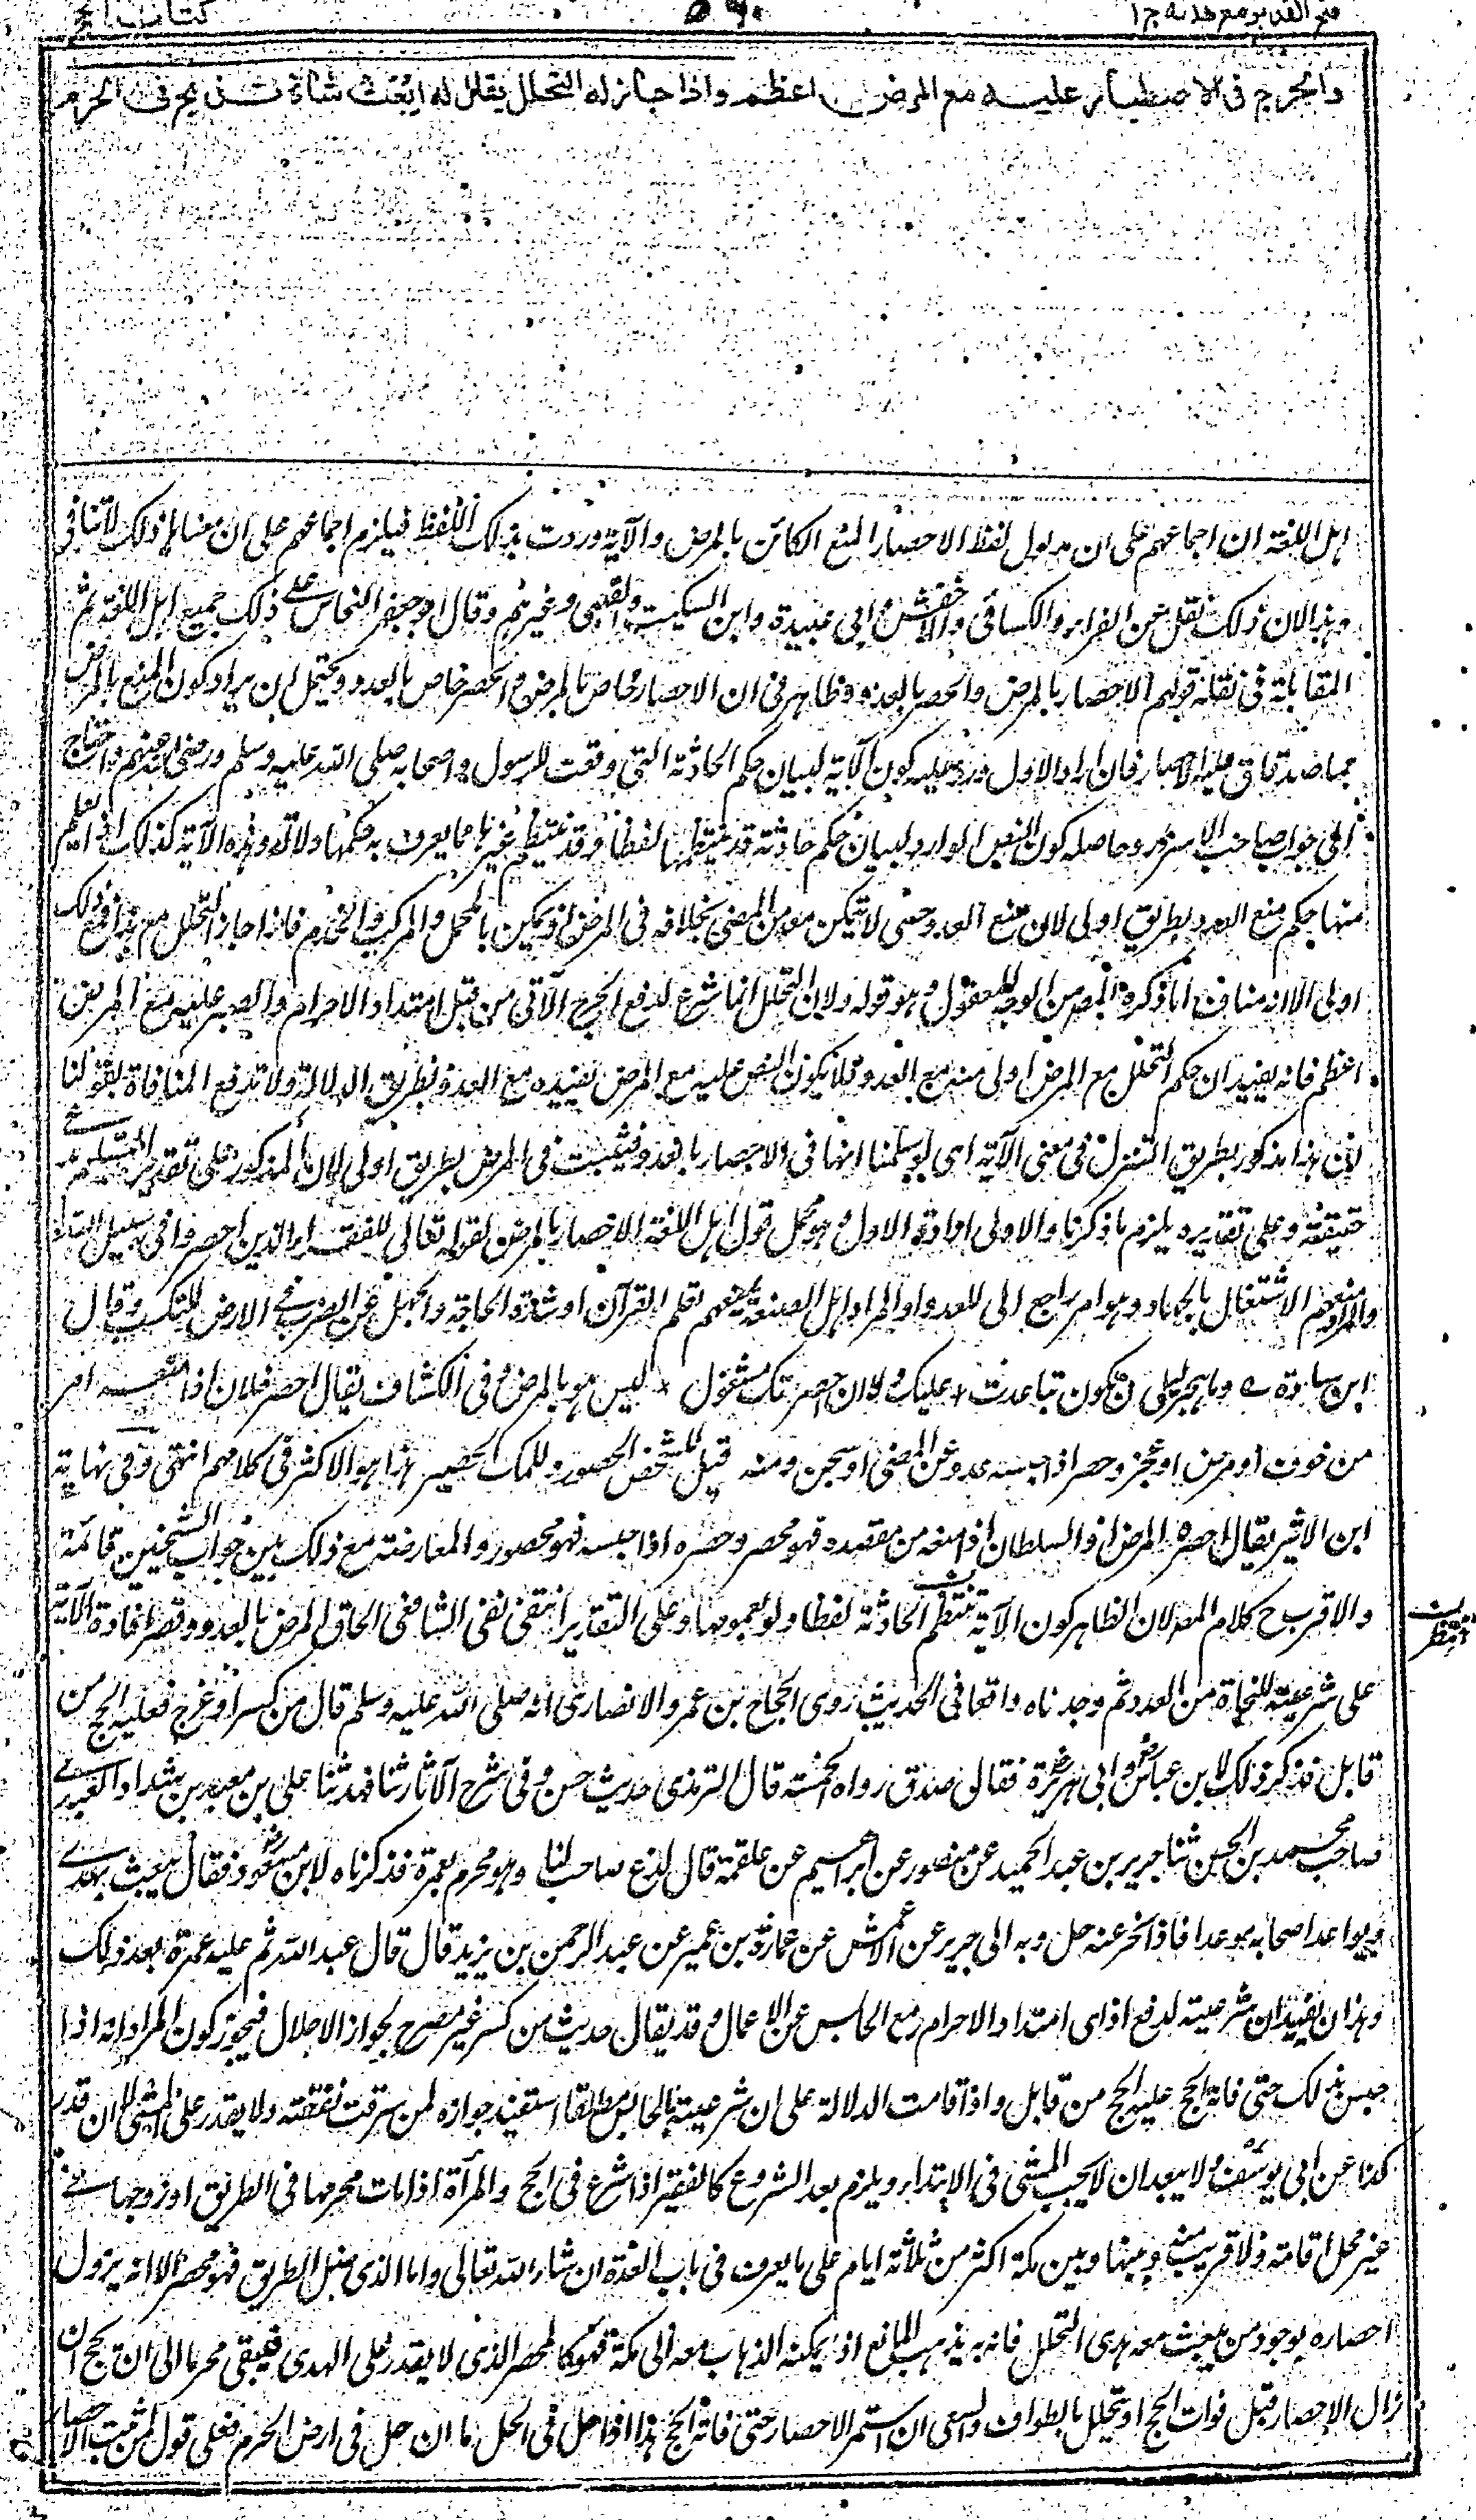 فتح القدير مع هدايه ج ١
٥٩٠
كتاب الحج
والحرج في الاصطبار عليه مع المرض اعظم واذا جاز له التحلل يقال له ابعث شاة تذبح في الحرم
اهل اللغة ان اجماعهم على ان مدلول لفظ الاحصار المنع الكائن بالمرض والآية وردت بذلك اللفظ فيلزم اجماعهم على ان معناها ذلك لاتنافى
وهذا لان ذلك نقل عن الفراء والكسائي والاخفش وابي عبيدة وابن السكيت والقتبي وغيرهم وقال ابو جعفر النحاس على ذلك جميع اهل اللغة ثم
المقابلة في نقله قولهم الاحصار بالمرض والحصر بالعدو وظاهر في ان الاحصار خاص بالمرض والحصر خاص بالعدو ويحتمل ان يراد كون المنع بالمرض
مما صدقات عليه الاحصار فان اراد الاول ورد عليه كون الآية لبيان حكم الحادثة التي وقعت للرسول واصحابه صلى الله عليه وسلم ورضي عنهم واحتاج
الى جواب صاحب الاسرار وحاصله كون النص الوارد لبيان حكم حادثة قد ينتظمها لفظا وقد ينتظم غيرها مما يعرف به حكمها دلالة وهذه الآية كذلك اذ يعلم
منها حكم منع العدو بطريق اولى لان منع العدو حسي لا يتمكن معه من المضي بخلافه في المرض اذ يمكن بالمحمل والمركب والخدم فاذا جاز التحلل مع هذا فمع ذلك
اولى الا انه مناف لما ذكره المصر من الوجه المعقول وهو قوله ولان التحلل انما شرع لدفع الحرج الآتي من قبل امتداد الاحرام والصبر عليه مع المرض
اعظم فانه يفيد ان حكم التحلل مع المرض اولى منه مع العدو فلا يكون النص عليه مع المرض يفيده مع العدو بطريق الدلالة ولا تدفع المنافاة بقولنا
ان هذا مذكور بطريق التنزل في معنى الآية اي لو سلمنا انها في الاحصار بالعدو فيثبت في المرض بطريق اولى لان المذكور على تقدير التسليم يدعى
حقيقته وعلى تقديره يلزم ما ذكرنا والاولى ارادة الاول وهو محمل قول اهل اللغة الاحصار بالمرض لقوله تعالى للفقراء الذين احصروا في سبيل الله
والمراد منعهم الاشتغال بالجهاد وهو امر راجع الى العدو او المراد اهل الصفة منعهم تعلم القرآن او شدة الحاجة والجهل عن الضرب في الارض للتكسب وقال
ابن ميادة ے وما هجر ليلى ان تكون تباعدت ٭ عليك ولا ان احصرتك شغول ٭ ليس هو بالمرض وفي الكشاف يقال احصر فلان اذا منعه امر
من خوف او مرض او عجز وحصر اذا حبسه عدو عن المضي او سجن ومنه قيل للشخص الحصور وللملك الحصير هذا هو الاكثر في كلامهم انتهى وفي نهاية
ابن الاثير يقال احصره المرض او السلطان اذا منعه من مقصده فهو محصر وحصره اذا حبسه فهو محصور والمعارضة مع ذلك بين جواب الشيخين قائمة
والاقرب ح كلام المص لان الظاهر كون الآية تنتظم الحادثة لفظا ولو بعمومها وعلى التقديرين انتفى نفي الشافعي الحاق المرض بالعدو وقصر افادة الآية
على شرعيته للنجاة من العدو ثم وجدناه واقعا في الحديث روى الحجاج بن عمرو الانصاري انه صلى الله عليه وسلم قال من كسر او عرج فعليه الحج من
قابل فذكر ذلك لابن عباس وابي هريرة فقالا صدق رواه الخمسة قال الترمذي حديث حسن وفي شرح الآثار ثنا فهد ثنا علي بن معبد بن شداد العبدي
صاحب محمد بن الحسن ثنا جرير بن عبد الحميد عن منصور عن ابراهيم عن علقمة قال لدغ صاحب لنا وهو محرم بعمرة فذكرناه لابن مسعود فقال يبعث بهدي
ويواعد اصحابه موعدا فاذا نحر عنه حل وبه الى جرير عن الاعمش عن عمارة بن عمير عن عبد الرحمن بن يزيد قال قال عبد الله ثم عليه عمرة بعد ذلك
وهذان يفيدان شرعيته لدفع اذى امتداد الاحرام مع الحابس عن الاعمال وقد يقال حديث من كسر غير مصرح بجواز الاحلال فيجوز كون المراد انه اذا
حبس بذلك حتى فاته الحج عليه الحج من قابل واذا قامت الدلالة على ان شرعيته بالحابس مطلقا استفيد جوازه لمن سرقت نفقته ولا يقدر على المشي لا ان قدر
كذا عن ابي يوسف ولا يبعد ان لا يجب المشي في الابتداء ويلزم بعد الشروع كالفقير اذا شرع في الحج والمرأة اذا مات محرمها في الطريق او زوجها في
غير محل اقامته ولا قريب منه وبينها وبين مكة اكثر من ثلاثة ايام على ما يعرف في باب العدة ان شاء الله تعالى واما الذي ضل الطريق فهو محصر الا انه يزول
احصاره بوجود من يبعث معه هدى التحلل فانه به يذهب المانع اذ يمكنه الذهاب معه الى مكة فهو كالمحصر الذي لا يقدر على الهدي فيبقى محرما الى ان يحج ان
زال الاحصار قبل فوات الحج او يتحلل بالطواف والسعي ان استمر الاحصار حتى فاته الحج هذا اذا ضل في الحل اما ان ضل في ارض الحرم فعلى قول من يثبت الاحصار